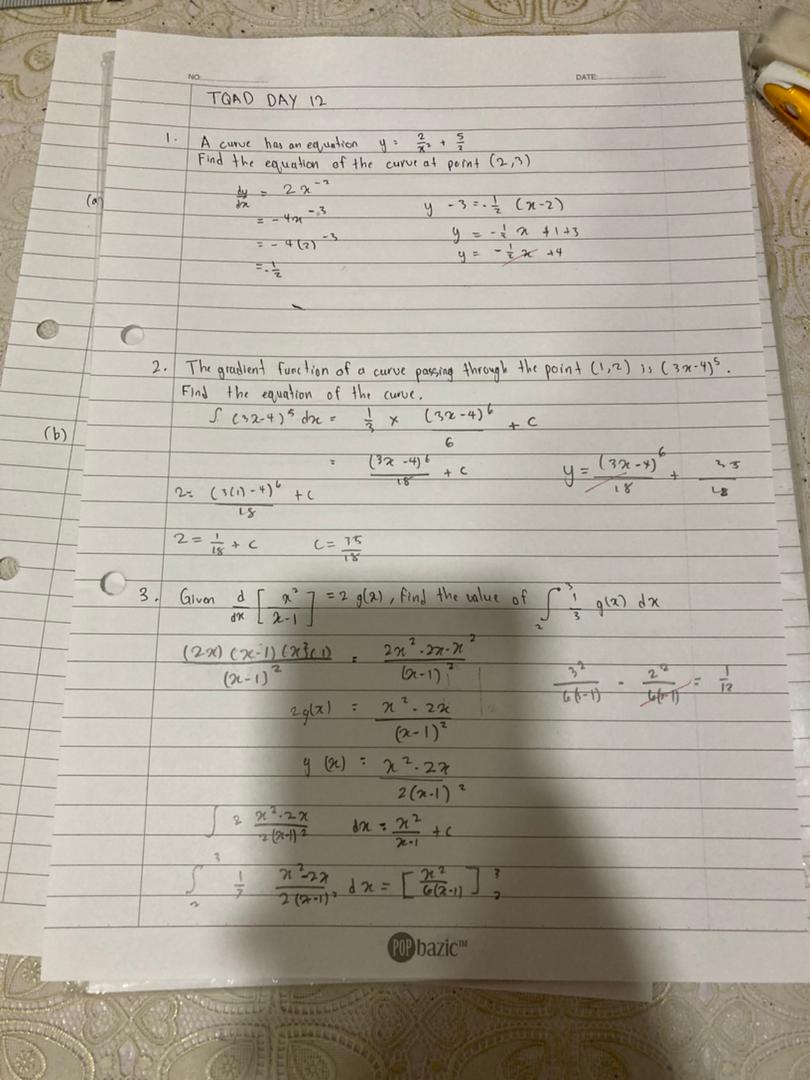 NO.
DATE:
TQAD DAY 12
1. A curve has an equation y = 2/x² + 5/2
Find the equation of the curve at point (2,3)
(a)
dy/dx = 2x⁻²
= -4x⁻³
= -4(2)⁻³
= -1/2
y - 3 = -1/2 (x-2)
y = -1/2 x + 1 + 3
y = -1/2 x + 4
2. The gradient function of a curve passing through the point (1,2) is (3x-4)⁵.
Find the equation of the curve.
(b)
∫ (3x-4)⁵ dx = 1/3 × (3x-4)⁶/6 + c
= (3x-4)⁶/18 + c
2 = (3(1)-4)⁶/18 + c
2 = 1/18 + c
c = 35/18
y = (3x-4)⁶/18 + 35/18
3. Given d/dx [x²/x-1] = 2 g(x), find the value of ∫₂³ 1/3 g(x) dx
(2x)(x-1)(x²)(1)/(x-1)² = 2x²-2x-x²/(x-1)²
2g(x) = x²-2x/(x-1)²
g(x) = x²-2x/2(x-1)²
∫ 2 x²-2x/2(x-1)² dx = x²/x-1 + c
∫₂³ 1/3 x²-2x/2(x-1)² dx = [x²/6(x-1)]³₂
3²/6(3-1) - 2²/6(2-1) = 1/12
POP bazic™